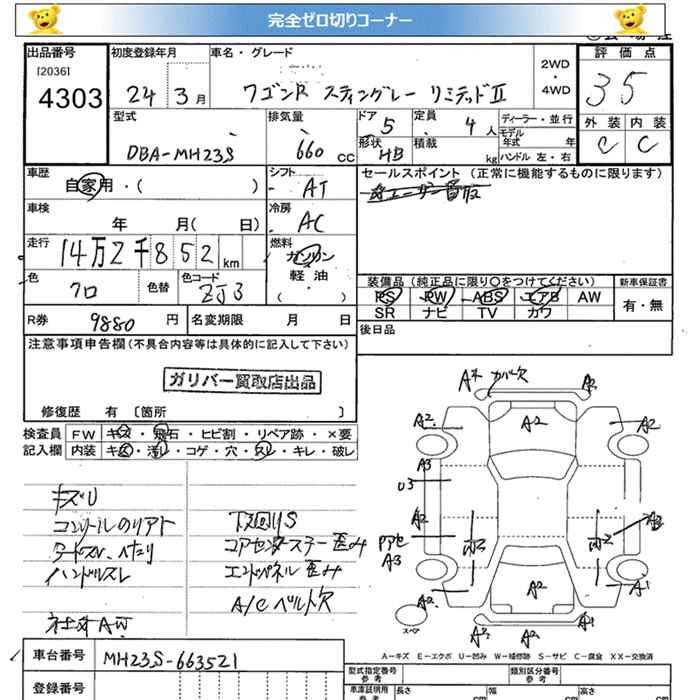 完全ゼロ切りコーナー
出品番号
[2036]
4303
初度登録年月
24 3月
車名・グレード
ワゴンR スティングレー リミテッドⅡ
2WD
・
4WD
評価点
35
外装 内装
C C
型式
DBA-MH23S
排気量
660 CC
ドア 5
形状 HB
定員 4人
積載 kg
ディーラー・並行
モデル年式 年
ハンドル 左・右
車歴
自家用・( )
シフト
AT
セールスポイント (正常に機能するものに限ります)
車検
年 月( 日)
冷房
AC
走行
14万2千852km
燃料
ガソリン
軽油
( ・ )
色
クロ
色替
色コード
ZJ3
装備品 (純正品に限り〇をつけてください)
PS PW ABS エアB AW
SR ナビ TV カワ
新車保証書
有・無
R券 9880 円
名変期限 月 日
後日品
注意事項申告欄(不具合内容等は具体的に記入して下さい)
ガリバー買取店出品
修復歴 有 〔箇所 〕
検査員
記入欄
FW キズ・飛石・ヒビ割・リペア跡・×要
内装 キズ・汚レ・コゲ・穴・スレ・キレ・破レ
キズU
ハンドルスレ
社外AW
下回りS
コアセンターステー歪み
エンドパネル歪み
A/Cベルト欠
カバー欠
A2
A2
A2
A3
U3
A2
A3
A2
A2
A1
A2
A1
スペア
A-キズ E-エクボ U-凹み W-補修跡 S-サビ C-腐食 XX-交換済
車台番号
MH23S-663521
登録番号
型式指定番号
参考
類別区分番号
参考
車庫証明用
参考
長さ cm
幅 cm
高さ cm